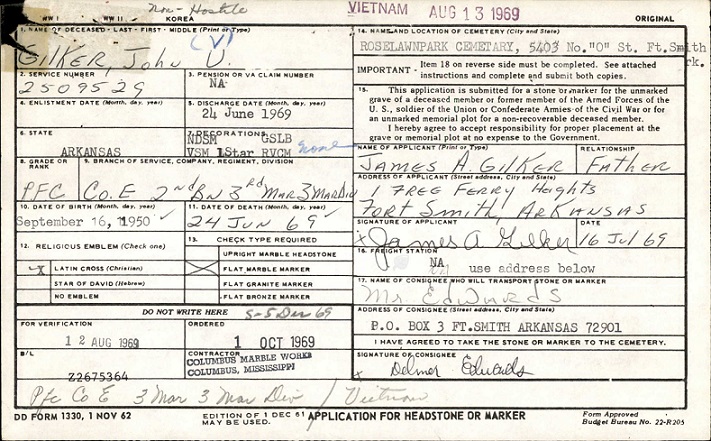 Non-Hostile
VIETNAM AUG 13 1969
WW I WW II KOREA ORIGINAL
1. NAME OF DECEASED - LAST - FIRST - MIDDLE (Print or Type)
(V)
GILKER, John V.
14. NAME AND LOCATION OF CEMETERY (City and State)
ROSELAWNPARK CEMETARY, 5403 No."O" St. Ft.Smith
rk.
2. SERVICE NUMBER
2509529
3. PENSION OR VA CLAIM NUMBER
NA
IMPORTANT - Item 18 on reverse side must be completed. See attached instructions and complete and submit both copies.
4. ENLISTMENT DATE (Month, day, year)
5. DISCHARGE DATE (Month, day, year)
24 June 1969
15. This application is submitted for a stone or marker for the unmarked
grave of a deceased member or former member of the Armed Forces of the
U. S., soldier of the Union or Confederate Armies of the Civil War or for
an unmarked memorial plot for a non-recoverable deceased member.
I hereby agree to accept responsibility for proper placement at the
grave or memorial plot at no expense to the Government.
6. STATE
ARKANSAS
7. DECORATIONS
NDSM GSLB
VSM 1Star RVCM none
8. GRADE OR RANK
PFC
9. BRANCH OF SERVICE, COMPANY, REGIMENT, DIVISION
Co. E 2nd BN 3rd Mar 3 Mar Div
NAME OF APPLICANT (Print or Type) RELATIONSHIP
JAMES A. GILKER Father
ADDRESS OF APPLICANT (Street address, City and State)
1 FREE FERRY Heights
FORT SMITH, ARKANSAS
10. DATE OF BIRTH (Month, day, year)
September 16, 1950
11. DATE OF DEATH (Month, day, year)
24 JUN 69
SIGNATURE OF APPLICANT DATE
x James A. Gilker 16 Jul 69
12. RELIGIOUS EMBLEM (Check one)
X LATIN CROSS (Christian)
STAR OF DAVID (Hebrew)
NO EMBLEM
13. CHECK TYPE REQUIRED
UPRIGHT MARBLE HEADSTONE
X FLAT MARBLE MARKER
FLAT GRANITE MARKER
FLAT BRONZE MARKER
16. FREIGHT STATION
NA use address below
17. NAME OF CONSIGNEE WHO WILL TRANSPORT STONE OR MARKER
Mr Edwards
ADDRESS OF CONSIGNEE (Street address, City and State)
P.O. BOX 3 FT.SMITH ARKANSAS 72901
DO NOT WRITE HERE S-5 Dec 69
FOR VERIFICATION
12 AUG 1969
ORDERED
1 OCT 1969
I HAVE AGREED TO TAKE THE STONE OR MARKER TO THE CEMETERY.
B/L
Z2675364
CONTRACTOR
COLUMBUS MARBLE WORKS
COLUMBUS, MISSISSIPPI
SIGNATURE OF CONSIGNEE
x Delmer Edwards
Pfc Co E 3 Mar 3 Mar Div / Vietnam
DD FORM 1330, 1 NOV 62
EDITION OF 1 DEC 61 MAY BE USED.
APPLICATION FOR HEADSTONE OR MARKER
Form Approved
Budget Bureau No. 22-R205